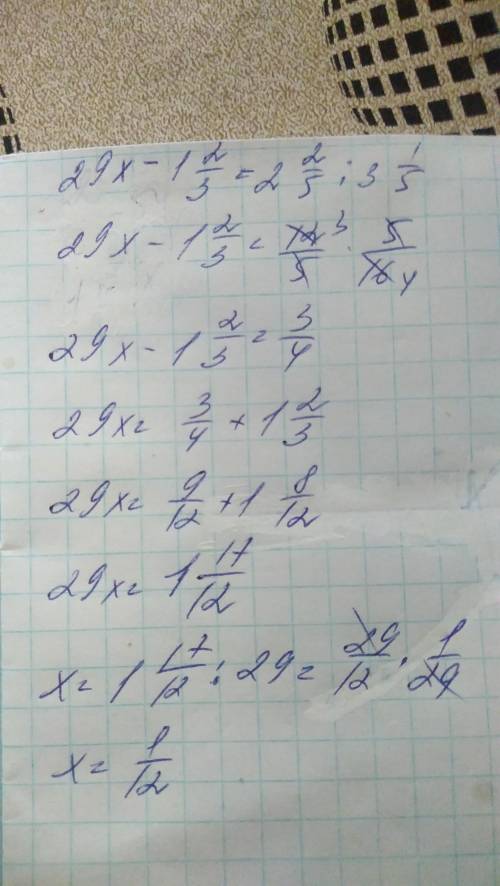 29x - 1 2/3 = 2 2/5 : 3 1/5
29x - 1 2/3 = 12/5 3 · 5/16 4
29x - 1 2/3 = 3/4
29x = 3/4 + 1 2/3
29x = 9/12 + 1 8/12
29x = 1 17/12
x = 1 17/12 : 29 = 29/12 · 1/29
x = 1/12